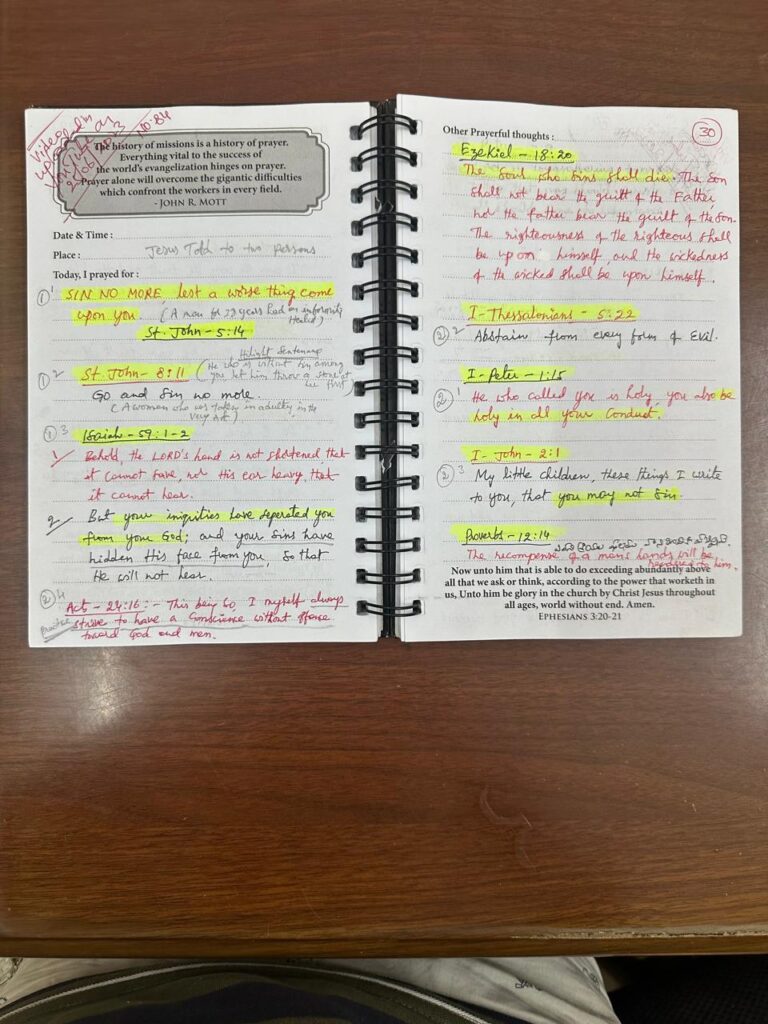 Video
uploaded on
YouTube
2023
NO: 84
The history of missions is a history of prayer.
Everything vital to the success of
the world's evangelization hinges on prayer.
Prayer alone will overcome the gigantic difficulties
which confront the workers in every field.
- JOHN R. MOTT
Date & Time :
Place : Jesus Told to two persons
Today, I prayed for :
1 1 SIN NO MORE, lest a worse thing come
upon you. (A man for 38 years had an infirmity
Healed)
St. John - 5:14
Hilight Sentence
1 2 St. John - 8:11 (He who is without sin among
you let him throw a stone at
her first)
Go and Sin no more.
(A woman who was taken in adultry in the
very act)
1 3 Isaiah - 59:1-2
1/ Behold, the LORD's hand is not shortened that
it cannot save, nor His ear heavy, that
it cannot hear.
2/ But your iniquities have seperated you
from your God; and your sins have
hidden His face from you, So that
He will not hear.
2 4 Act - 24:16: - This being So, I myself always
practice strive to have a Conscience without offense
toward God and men.
Other Prayerful thoughts :
30
Ezekiel - 18:20
The Soul who Sins shall die. The Son
shall not bear the guilt of the Father,
nor the father bear the guilt of the Son.
The righteousness of the righteous shall
be upon himself, and the wickedness
of the wicked shall be upon himself.
I - Thessalonians - 5:22
2 2 Abstain from every form of Evil.
I - Peter - 1:15
2 1 He who called you is holy, you also be
holy in all your Conduct.
I - John - 2:1
2 3 My little children, these things I write
to you, that you may not Sin.
Proverbs - 12:14
The recompense of a man's hands will be
rendered to him.
Now unto him that is able to do exceeding abundantly above
all that we ask or think, according to the power that worketh in
us, Unto him be glory in the church by Christ Jesus throughout
all ages, world without end. Amen.
EPHESIANS 3:20-21